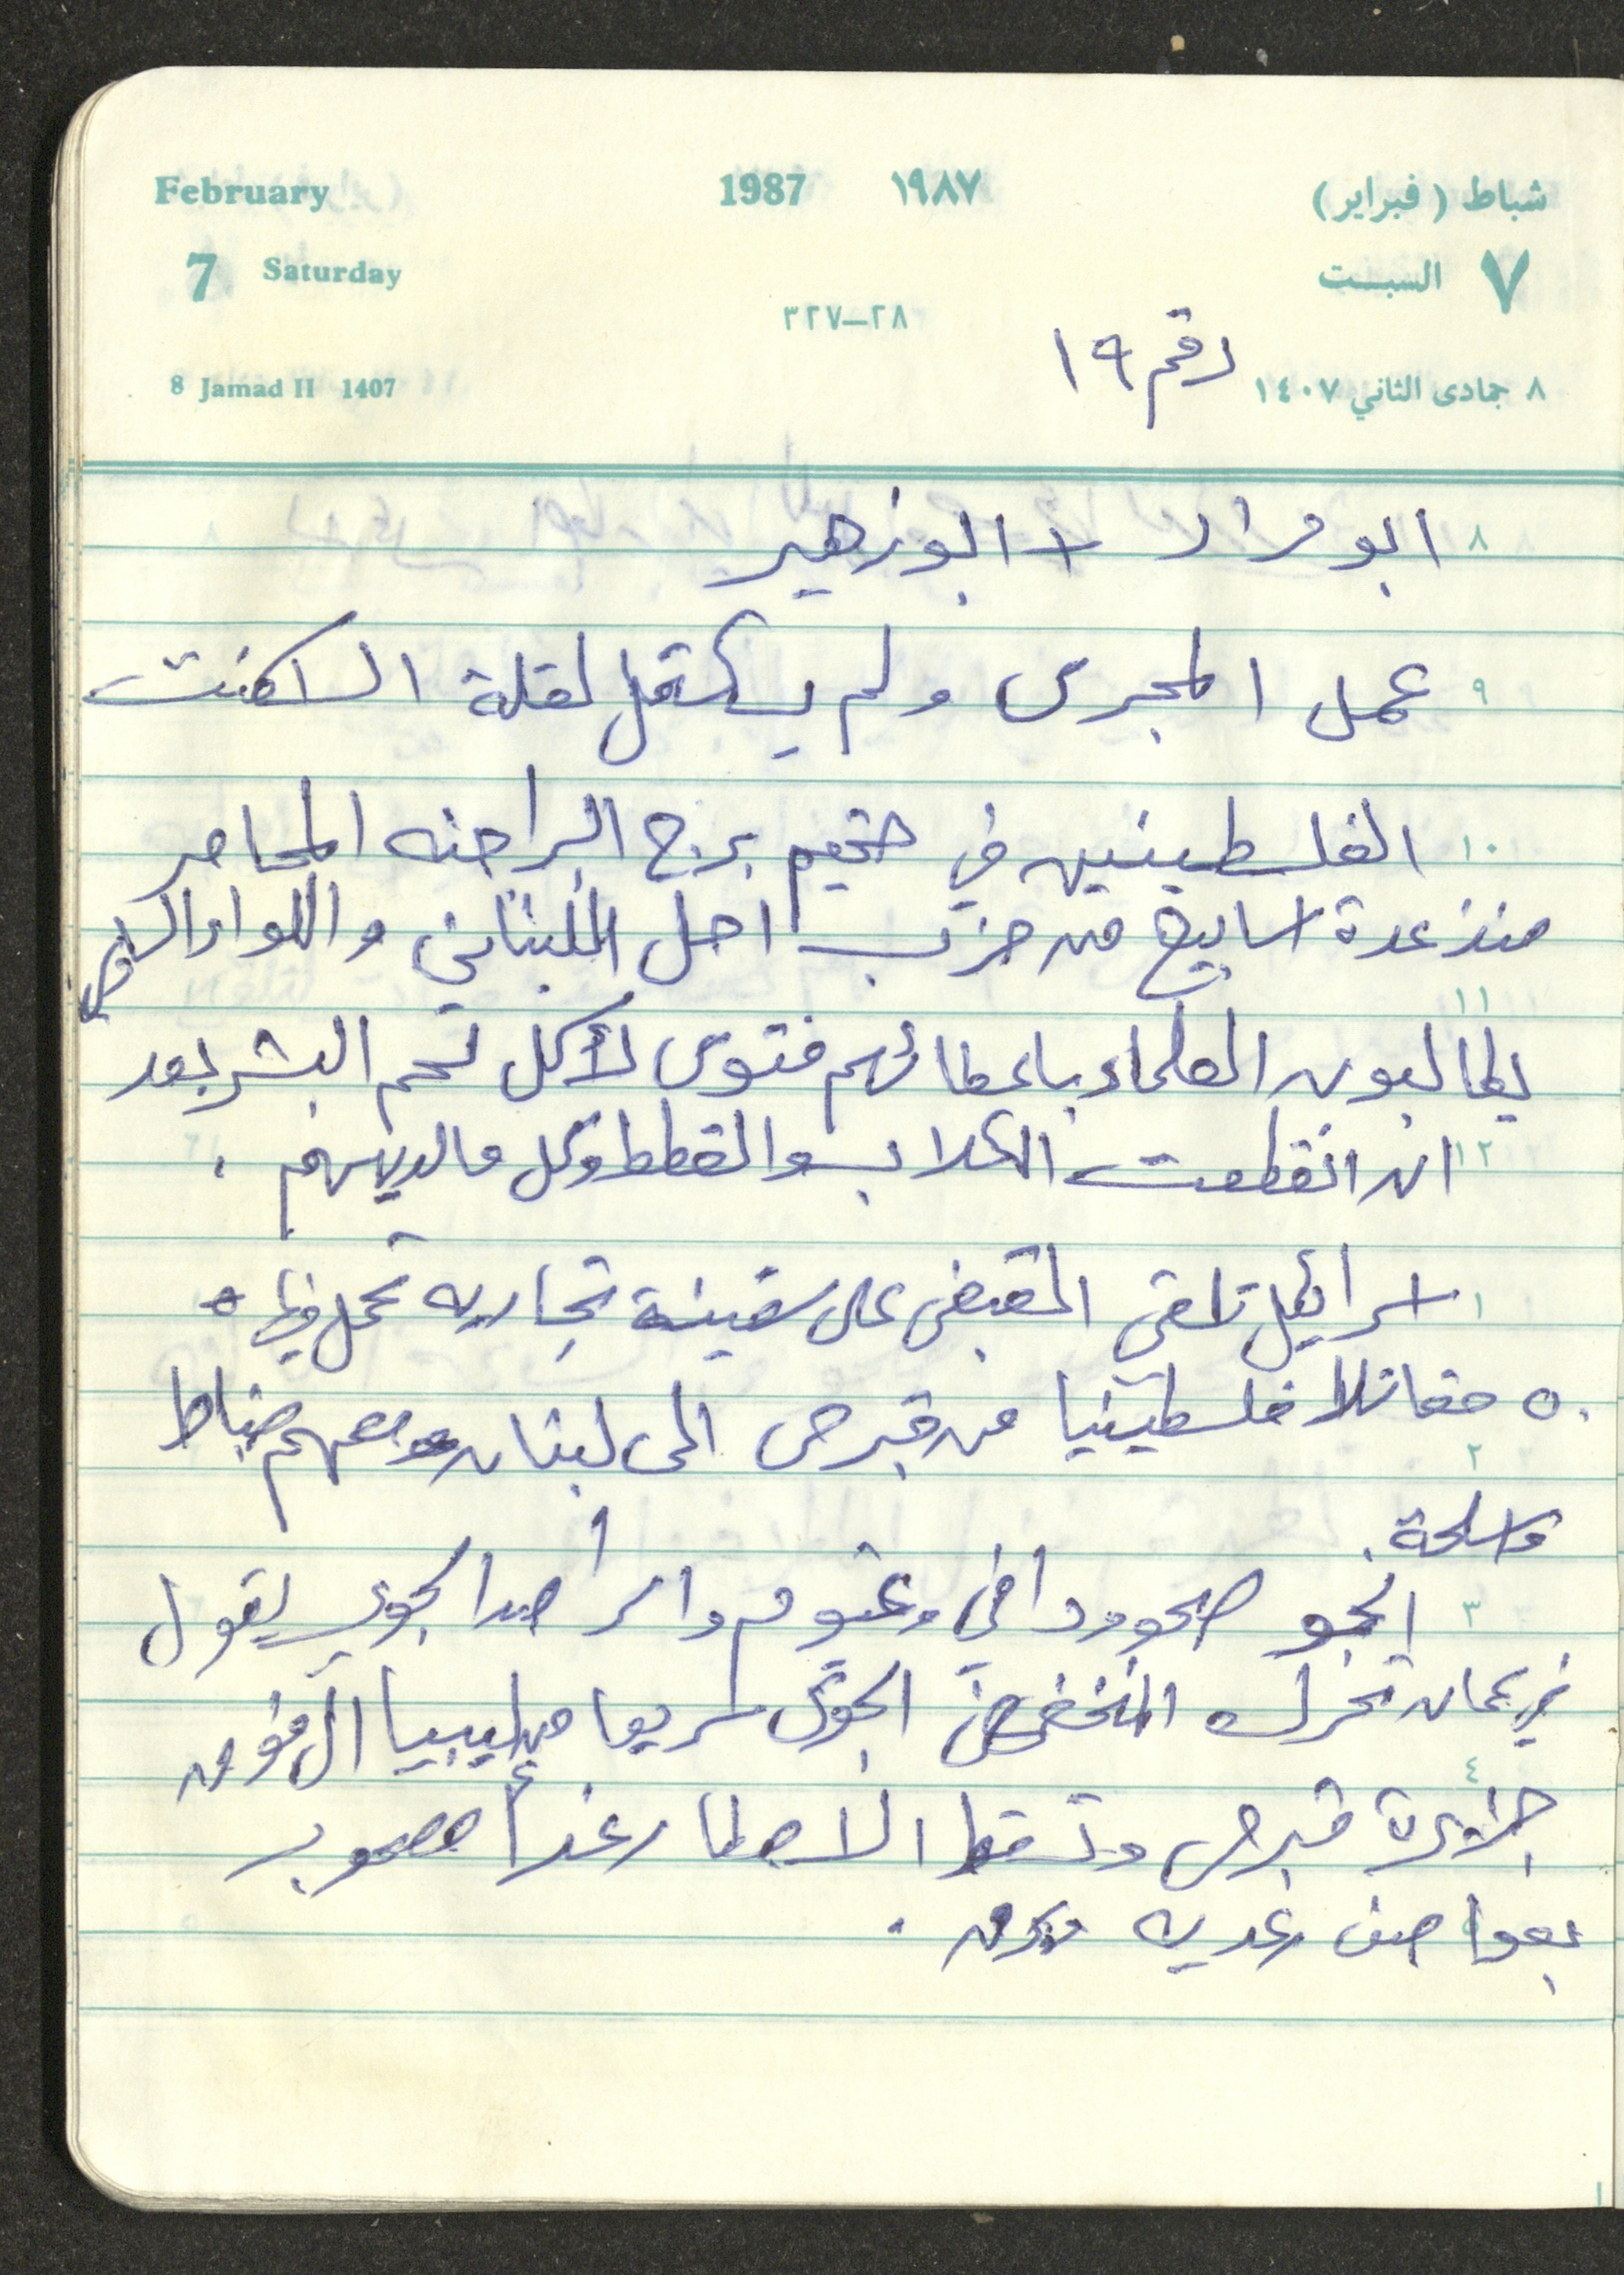 February 1987 ١٩٨٧ شباط (فبراير)
7 Saturday ٧ السبت
٢٨–٣٢٧
رقم ١٩
8 Jamad II 1407 ٨ جمادى الثاني ١٤٠٧
٨ ابو مراد + ابو زهير
٩ عمل المجرى ولم يكتمل لقلة السمنت
١٠ الفلسطينيين في مخيم برج البراجنه المحاصر
منذ عدة اسابيع من حزب امل اللبناني واللواء السادس
١١
يطالبون العلماء باعطائهم فتوى لأكل لحم البشر بعد
١٢ ان انقطعت الكلاب والقطط وكل ما لديهم .
١ اسرائيل تلقي القبض على سفينة تجاريه تحمل فيها
٥٠ مقاتلا فلسطينيا من قبرص الى لبنان ومعهم ضباط
٢
واسلحة .
٣ الجو صحو ودافي وغيوم والراصد الجوي يقول
في عمان تحرك المنخفض الجوي سريعا من ليبيا الى فوق
٤
جزيرة قبرص وتسقط الامطار غداً مصحوب
بعواصف رعديه .